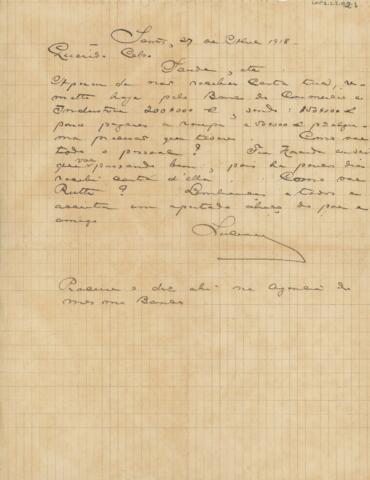 Santos, 27 de 1918
Querido Celso
Saude, etc.
Apezar de não receber carta tua, re-
metto hoje pelo Banco do Commercio e
Industria 200$000 sendo: 150$000
para pagares a roupa e 50$000 p.algu-
ma precisão que tiveres. Como vae
todo o pessoal? Tia
que vae passando bem, pois ha poucos dias
recebi carta d'ella. Como vae
Ruth? Lembranças a todos e
acceita um apertado abraço do pae e
amigo
Procura o din. ahi na Agencia do
mesmo Banco